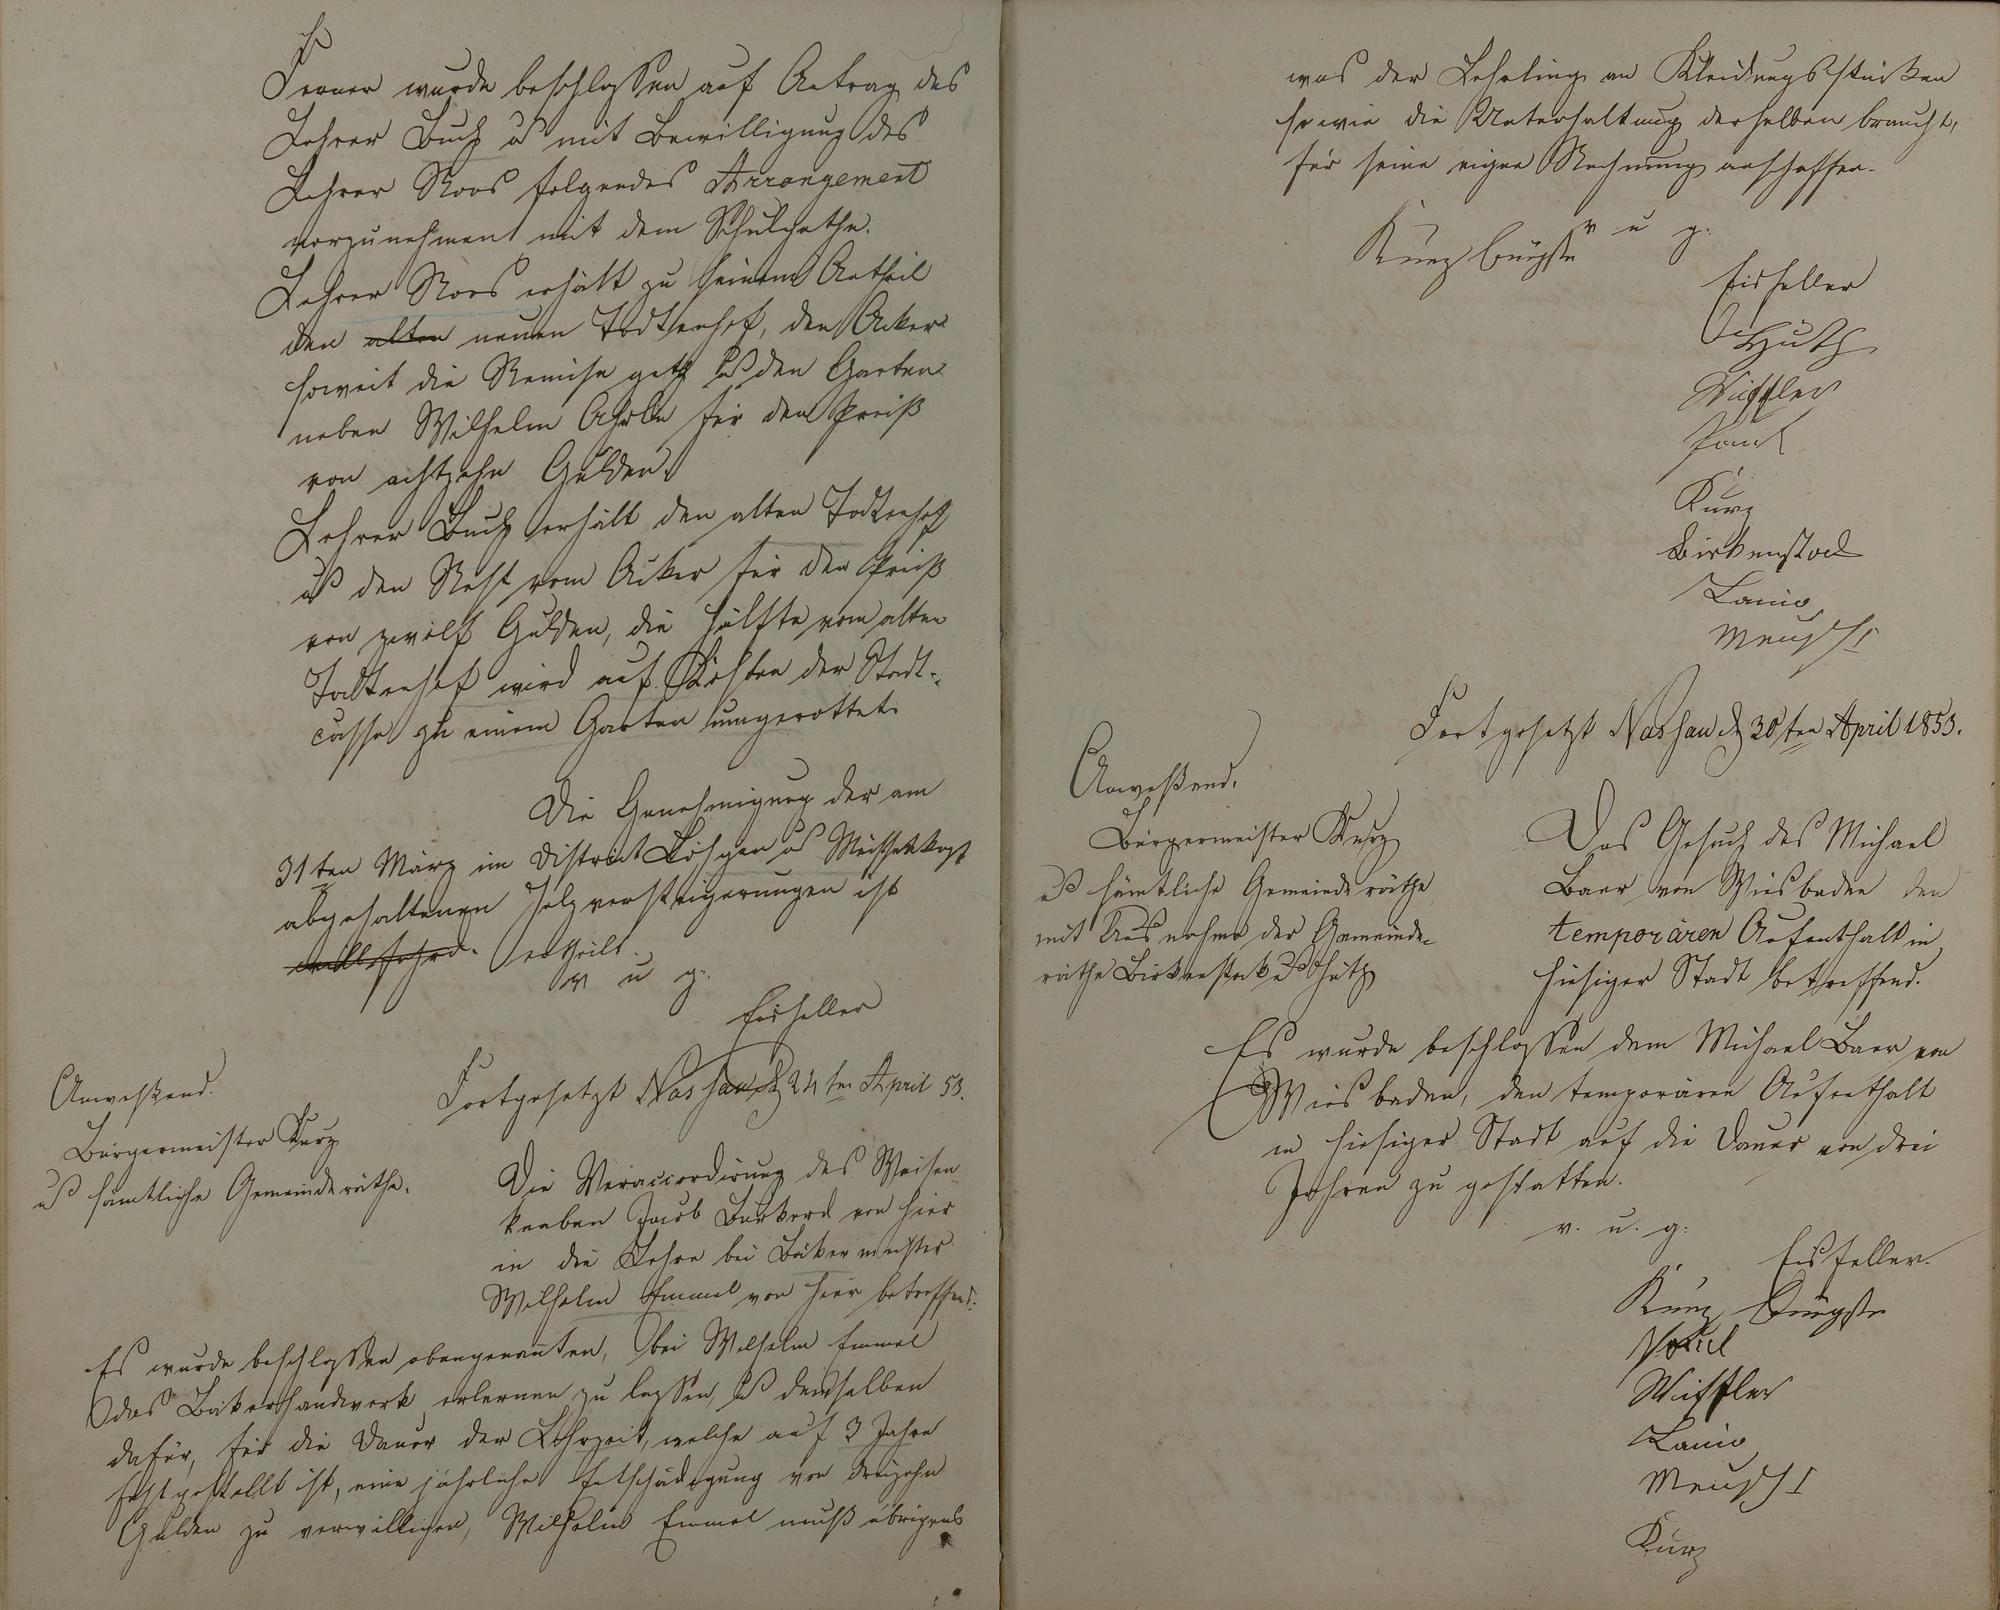 Ferner wurde beschlossen auf Antrag des
Lehrer Buch u mit Bewilligung des
Lehrer Roos folgendes Arrangement
vorzunehmen mit dem Schulguthe.
Lehrer Roos erhält zu seinem Antheil
den alten neuen Todtenhof, den Acker
soweit die Remise geth u den Garten
neben Wilhelm für den Preiß
von achtzehn Gulden.
Lehrer Buch erhält den alten Todtenhof
u den Rest vom Acker für den Preiß
von zwölf Gulden, die Hälfte vom alten
Todtenhof wird auf Kosten der Stadt-
casse zu einem Garten umgerottet.
Die Genehmigung der am
31ten März im District u
abgehaltenen Holzversteigerungen ist
willfahrd. ertheilt.
v u g.
Eisfeller
Fortgesetzt Nassau d 24ten April 53.
Anweßend.
Bürgermeister Kurz
u sämtliche Gemeinderäthe.
Die Veraccordirung des Waisen
knaben Jacob Burkard von hier
in die Lehre bei Bäkermeister
Wilhelm Emmel von hier betreffend.
Es wurde beschlossen obengenannten, bei Wilhelm Emmel
das Bäkerhandwerk erlernen zu lassen, u demselben
dafür, für die Dauer der Lehrzeit, welche auf 3 Jahre
festgestellt ist, eine jährliche Entschädigung von dreizehn
Gulden zu verwilligen, Wilhelm Emmel muß übrigens
was der Lehrling an Kleidungsstücken
sowie die Unterhaltung derselben braucht,
für seine eigne Rechnung anschaffen.
v u g.
Kurz Bürgstr
Eisfeller
Huth
Kurz
Birkenstock
Lanio
Meusch I
Fortgesetzt Nassau d 30ten April 1853.
Anweßend.
Bürgermeister Kurz
u sämtliche Gemeinderäthe
mit Ausnahme der Gemeinde-
räthe Birkenstock u Huth
Das Gesuch des Michael
Baer von Wiesbaden den
temporären Aufenthalt in
hiesiger Stadt betreffend.
Es wurde beschlossen dem Michael Baer von
Wiesbaden, den temporären Aufenthalt
in hiesiger Stadt auf die Dauer von drei
Jahren zu gestatten.
v. u. g.
Eisfeller.
Kurz Bürgstr
Lanio
Meusch I
Kurz